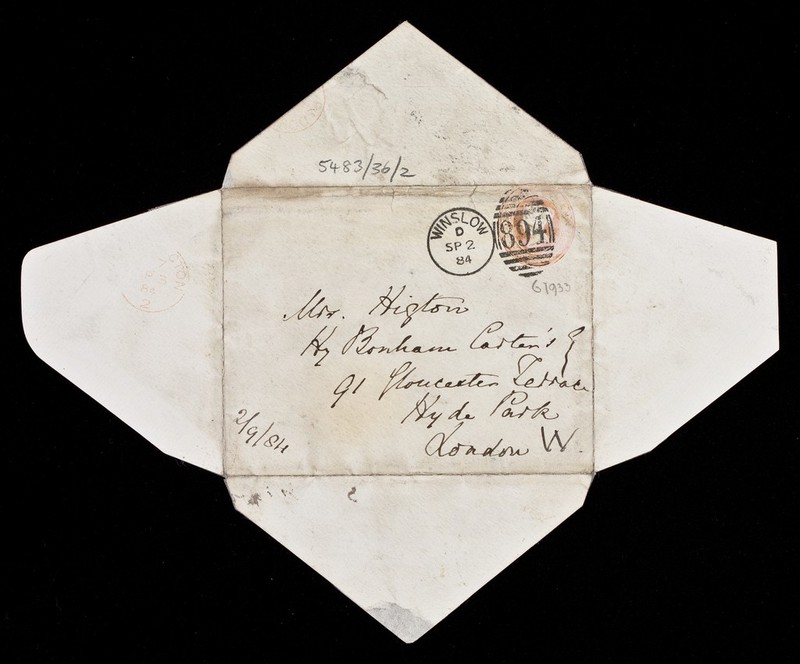 5483/36/2
WINSLOW
D
SP 2
84
894
61933
Mrs. Higton
Hy Bonham Carter's
91 Gloucester Terrace
Hyde Park
London W.
2/9/84